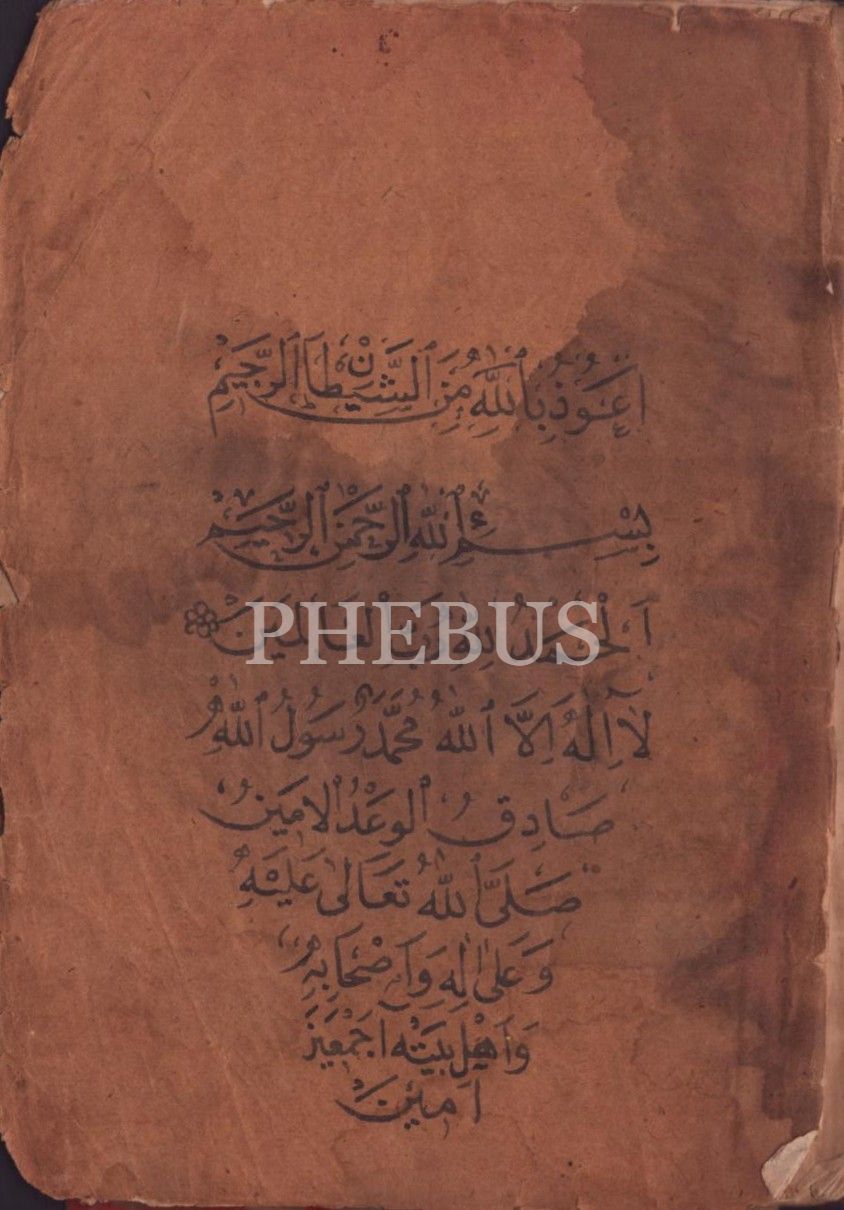 اَعُوذُ بِاللّٰهِ مِنَ الشَّيْطَانِ الرَّجِيمِ
بِسْمِ اللّٰهِ الرَّحْمٰنِ الرَّحِيمِ
اَلْحَمْدُ لِلّٰهِ رَبِّ الْعَالَمِينَ
PHEBUS
لَا اِلٰهَ اِلَّا اللّٰهُ مُحَمَّدٌ رَسُولُ اللّٰهِ
صَادِقُ الْوَعْدُ الْاَمِينُ
صَلَّى اللّٰهُ تَعَالٰى عَلَيْهِ
وَعَلٰى اٰلِهِ وَاَصْحَابِهِ
وَاَهْلِ بَيْتِهِ اَجْمَعِينَ
اٰمِينَ